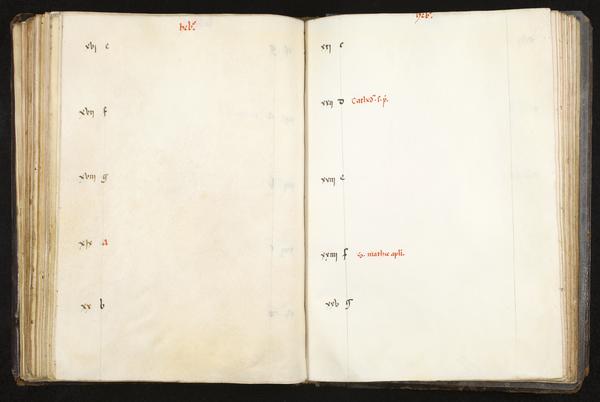 feb᷑.
xvj e
xvij f
xviij g
xix a
xx b
feb᷑.
xxj c
xxij D Cathed᷑. s. p̄.
xxiij e
xxiiij f S. mathie apli.
xxv g